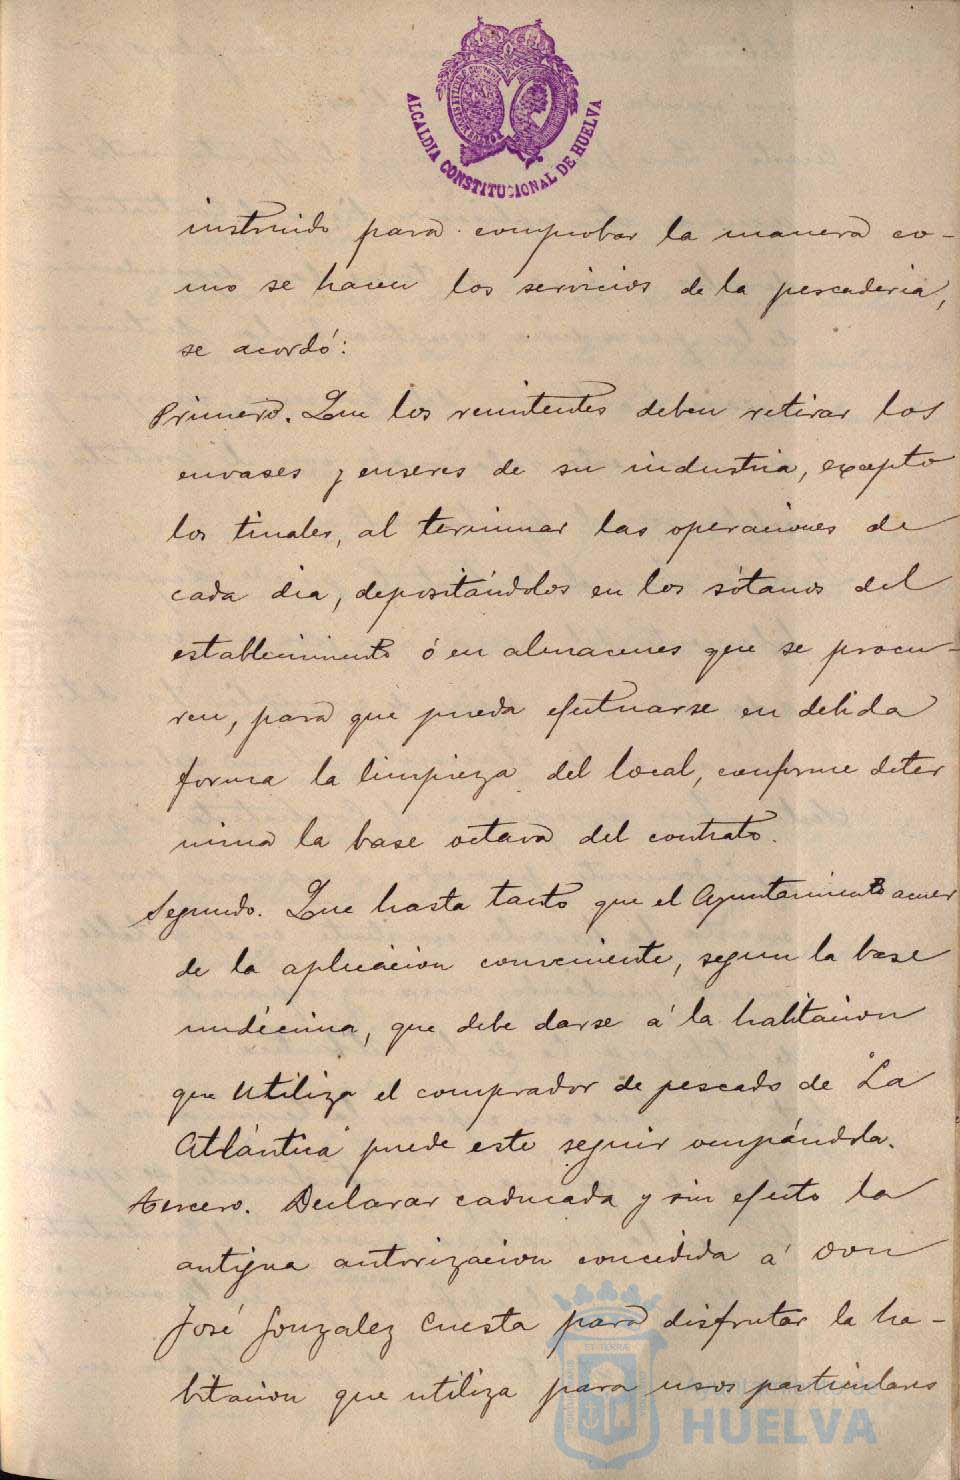 ALCALDIA CONSTITUCIONAL DE HUELVA
instruido para comprobar la manera co-
mo se hacen los servicios de la pescaderia,
se acordó:
Primero. Que los remitentes deben retirar los
envases y enseres de su industria, excepto
los tinales, al terminar las operaciones de
cada dia, depositándolos en los sótanos del
establecimiento ó en almacenes que se procu-
ren, para que pueda efectuarse en debida
forma la limpieza del local, conforme deter
mina la base octava del contrato.
Segundo. Que hasta tanto que el Ayuntamiento acuer
de la aplicacion conveniente, segun la base
undécima, que debe darse á la habitacion
que utiliza el comprador de pescado de "La
Atlántica" puede este seguir ocupándola.
Tercero. Declarar caducada y sin efecto la
antigua autorizacion concedida á Don
José Gonzalez Cuesta para disfrutar la ha-
bitacion que utiliza para usos particulares
HUELVA